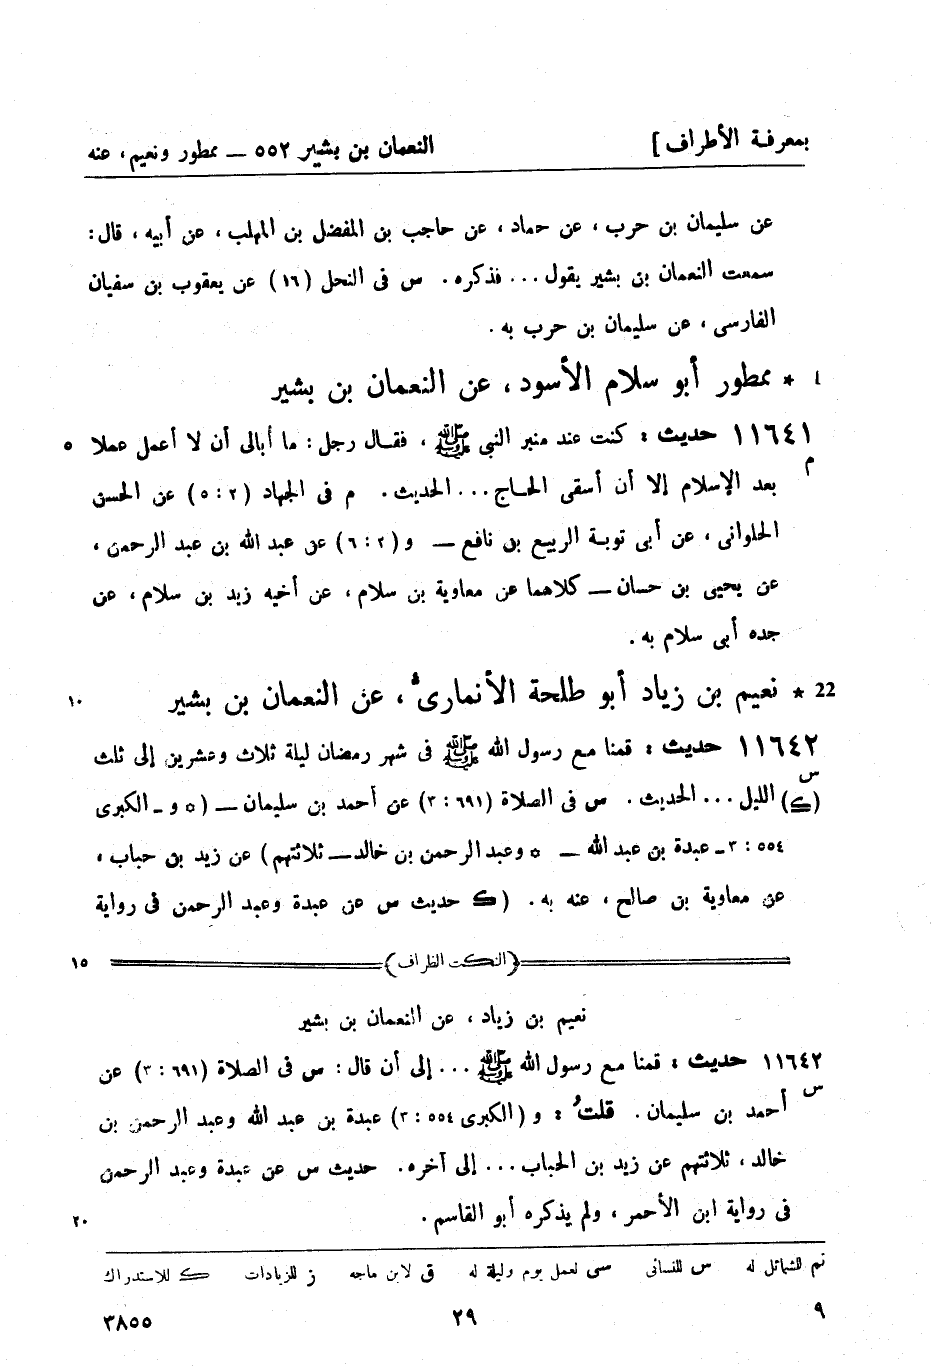 بمعرفة الأطراف] النعمان بن بشير ٥٥٢ — ممطور ونعيم ، عنه
عن سليمان بن حرب ، عن حماد ، عن حاجب بن المفضل بن المهلب ، عن أبيه ، قال :
سمعت النعمان بن بشير يقول ... فذكره . س فى النحل (١٦) عن يعقوب بن سفيان
الفارسى ، عن سليمان بن حرب به .
* ممطور أبو سلام الأسود ، عن النعمان بن بشير
١١٦٤١ حديث : كنت عند منبر النبى ﷺ ، فقال رجل : ما أبالى أن لا أعمل عملا ٥
م
بعد الإسلام إلا أن أسقى الحاج ... الحديث . م فى الجهاد (٥ : ٢) عن الحسن
الحلوانى ، عن أبى توبة الربيع بن نافع — و (٦ : ٢) عن عبد الله بن عبد الرحمن ،
عن يحيى بن حسان — كلاهما عن معاوية بن سلام ، عن أخيه زيد بن سلام ، عن
جده أبى سلام به .
22 * نعيم بن زياد أبو طلحة الأنمارى ، عن النعمان بن بشير ١٠
١١٦٤٢ حديث : قمنا مع رسول الله ﷺ فى شهر رمضان ليلة ثلاث وعشرين إلى ثلث
س
(ك) الليل ... الحديث . س فى الصلاة (٦٩١ : ٣) عن أحمد بن سليمان — (* و ـ الكبرى
٥٥٤ : ٣ ـ عبدة بن عبد الله — * وعبد الرحمن بن خالد — ثلاثتهم) عن زيد بن حباب ،
عن معاوية بن صالح ، عنه به . (ك حديث س عن عبدة وعبد الرحمن فى رواية
(النكت الظراف) ١٥
نعيم بن زياد ، عن النعمان بن بشير
١١٦٤٢ حديث : قمنا مع رسول الله ﷺ ... إلى أن قال : س فى الصلاة (٦٩١ : ٣) عن
س
أحمد بن سليمان . قلتُ : و (الكبرى ٥٥٤ : ٣) عبدة بن عبد الله وعبد الرحمن بن
خالد ، ثلاثتهم عن زيد بن الحباب ... إلى آخره . حديث س عن عبدة وعبد الرحمن
فى رواية ابن الأحمر ، ولم يذكره أبو القاسم . ٢٠
تم للشمائل له س للنسائى سى لعمل يوم وليلة له ق لابن ماجه ز للزيادات ك للاستدراك
٩ ٢٩ ٣٨٥٥